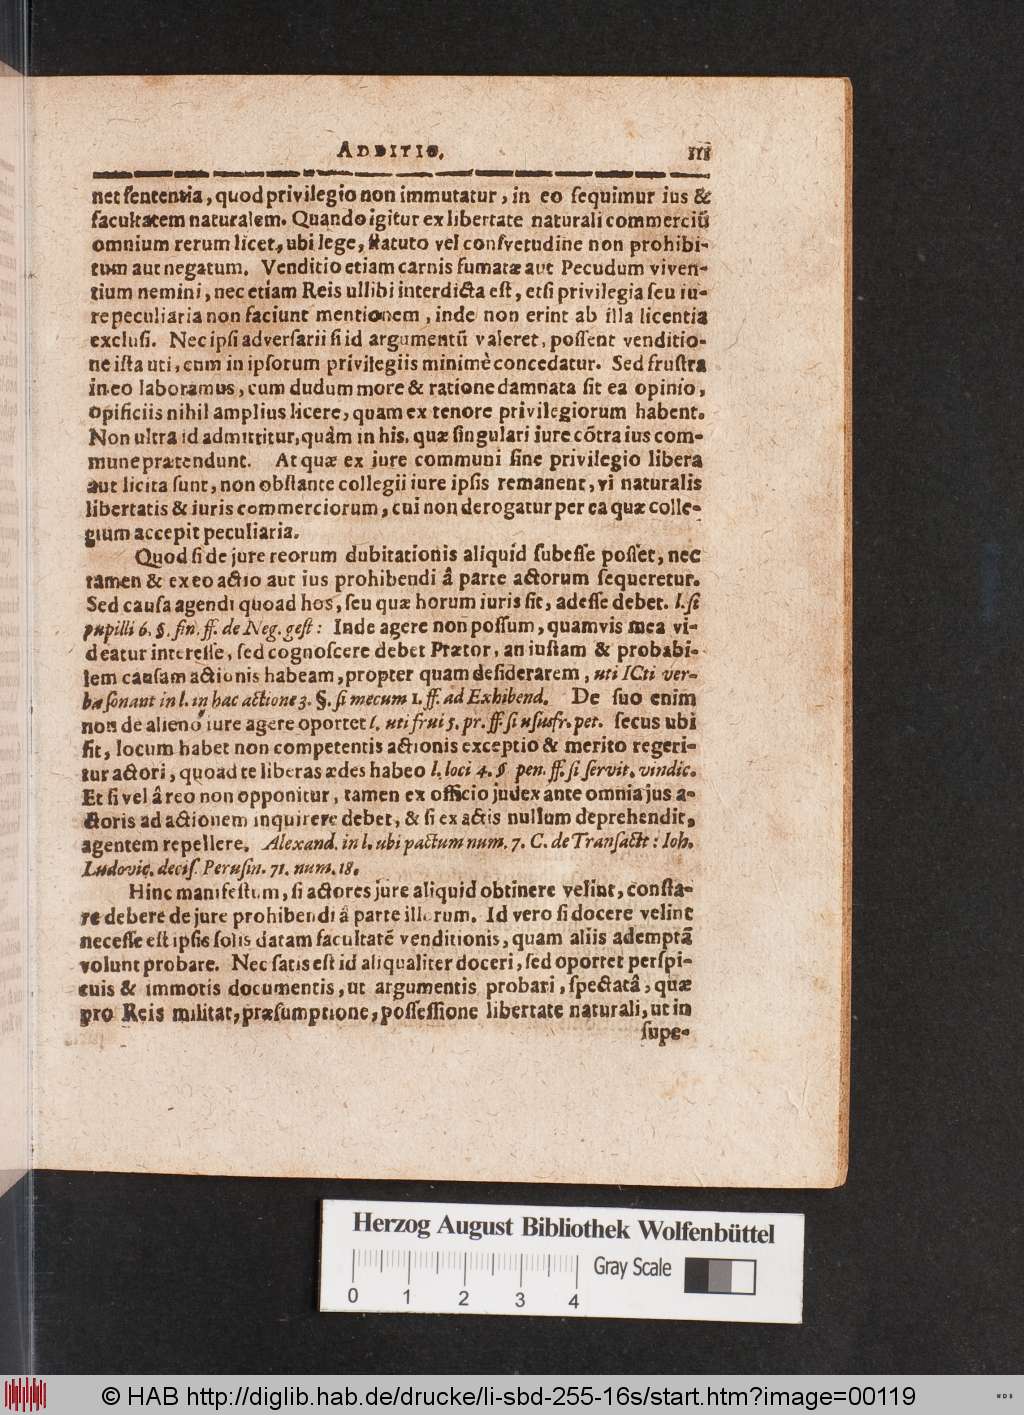 ADDITIO. 111
net ſententia, quod privilegio non immutatur, in eo ſequimur ius &
facultatem naturalem. Quando igitur ex libertate naturali commerciū
omnium rerum licet, ubi lege, ſtatuto vel conſvetudine non prohibi-
tum aut negatum. Venditio etiam carnis fumatæ aut Pecudum viven-
tium nemini, nec etiam Reis ullibi interdicta eſt, etſi privilegia ſeu iu-
re peculiaria non faciunt mentionem, inde non erint ab illa licentia
excluſi. Nec ipſi adverſarii ſi id argumentū valeret, poſſent venditio-
ne iſta uti, cum in ipſorum privilegiis minimè concedatur. Sed fruſtra
in eo laboramus, cum dudum more & ratione damnata ſit ea opinio,
opificiis nihil amplius licere, quam ex tenore privilegiorum habent.
Non ultra id admittitur, quàm in his, quæ ſingulari iure cōtra ius com-
mune prætendunt. At quæ ex jure communi ſine privilegio libera
aut licita ſunt, non obſtante collegii iure ipſis remanent, vi naturalis
libertatis & iuris commerciorum, cui non derogatur per ea quæ colle-
gium accepit peculiaria.
Quod ſi de jure reorum dubitationis aliquid ſubeſſe poſſet, nec
tamen & ex eo actio aut ius prohibendi â parte actorum ſequeretur.
Sed cauſa agendi quoad hos, ſeu quæ horum iuris ſit, adeſſe debet. l. ſi
pupilli 6. §. fin. ff. de Neg. geſt: Inde agere non poſſum, quamvis mea vi-
deatur intereſſe, ſed cognoſcere debet Prætor, an iuſtam & probabi-
lem cauſam actionis habeam, propter quam deſiderarem, uti ICti ver-
ba ſonant in l. in hac actione 3. §. ſi mecum 1. ff. ad Exhibend. De ſuo enim
non de alieno iure agere oportet l. uti frui 5. pr. ff. ſi uſusfr. pet. ſecus ubi
fit, locum habet non competentis actionis exceptio & merito regeri-
tur actori, quoad te liberas ædes habeo l. loci 4. § pen. ff. ſi ſervit. vindic.
Et ſi vel â reo non opponitur, tamen ex officio judex ante omnia jus a-
ctoris ad actionem inquirere debet, & ſi ex actis nullum deprehendit,
agentem repellere. Alexand. in l. ubi pactum num. 7. C. de Tranſact: Ioh.
Ludovic. deciſ. Peruſin. 71. num. 18.
Hinc manifeſtum, ſi actores jure aliquid obtinere velint, conſta-
re debere de jure prohibendi â parte illorum. Id vero ſi docere velint
neceſſe eſt ipſis ſolis datam facultatē venditionis, quam aliis ademptā
volunt probare. Nec ſatis eſt id aliqualiter doceri, ſed oportet perſpi-
cuis & immotis documentis, ut argumentis probari, ſpectatâ, quæ
pro Reis militat, præſumptione, poſſeſſione libertate naturali, ut in
ſupe-
Herzog August Bibliothek Wolfenbüttel
Gray Scale
0 1 2 3 4
© HAB http://diglib.hab.de/drucke/li-sbd-255-16s/start.htm?image=00119